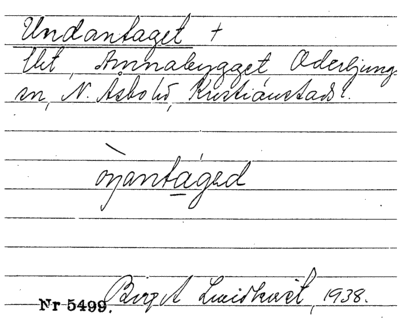 Undantaget +
Ut, Annabygget, Oderljunga
sn, N. Åsbo hd, Kristianstads l.
òŋantáged
Nr 5499. Birgit 1938.